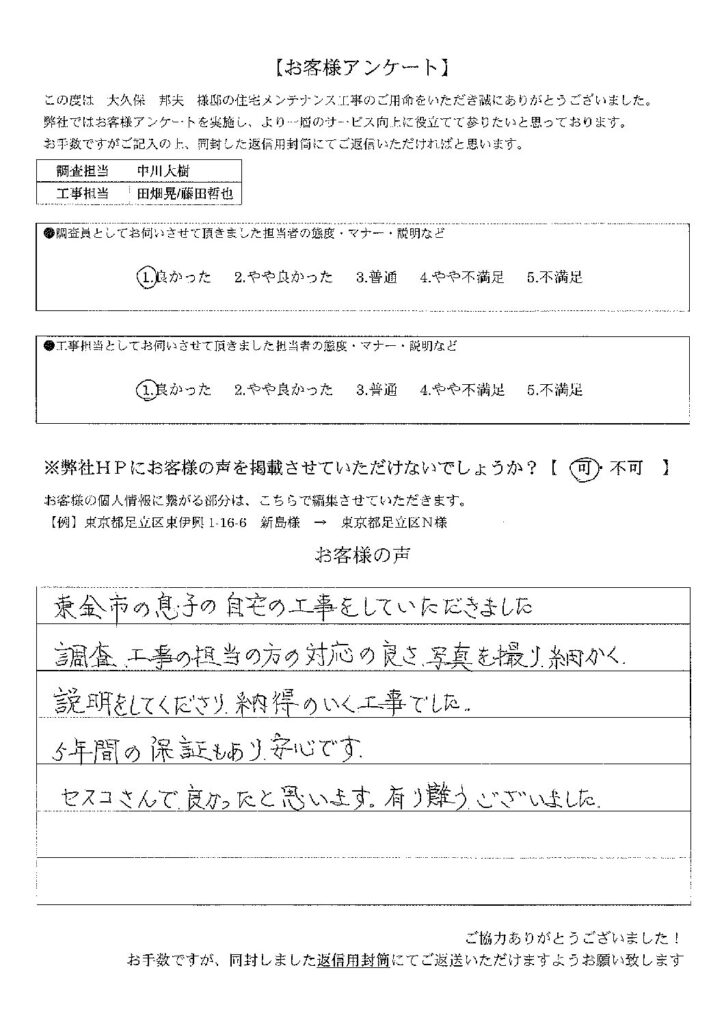 【お客様アンケート】
この度は 大久保 邦夫 様邸の住宅メンテナンス工事のご用命をいただき誠にありがとうございました。
弊社ではお客様アンケートを実施し、より一層のサービス向上に役立てて参りたいと思っております。
お手数ですがご記入の上、同封した返信用封筒にてご返信いただければと思います。
調査担当 中川大樹
工事担当 田畑晃/藤田哲也
●調査員としてお伺いさせて頂きました担当者の態度・マナー・説明など
1.良かった 2.やや良かった 3.普通 4.やや不満足 5.不満足
●工事担当としてお伺いさせて頂きました担当者の態度・マナー・説明など
1.良かった 2.やや良かった 3.普通 4.やや不満足 5.不満足
※弊社HPにお客様の声を掲載させていただけないでしょうか?【 可・不可 】
お客様の個人情報に繋がる部分は、こちらで編集させていただきます。
【例】東京都足立区東伊興1-16-6 新島様 → 東京都足立区N様
お客様の声
東金市の息子の自宅の工事をしていただきました
調査、工事の担当の方の対応の良さ、写真を撮り、細かく、
説明をしてくださり、納得のいく工事でした。
5年間の保証もあり、安心です。
セスコさんで、良かったと思います。有り難うございました。
ご協力ありがとうございました!
お手数ですが、同封しました返信用封筒にてご返送いただけますようお願い致します